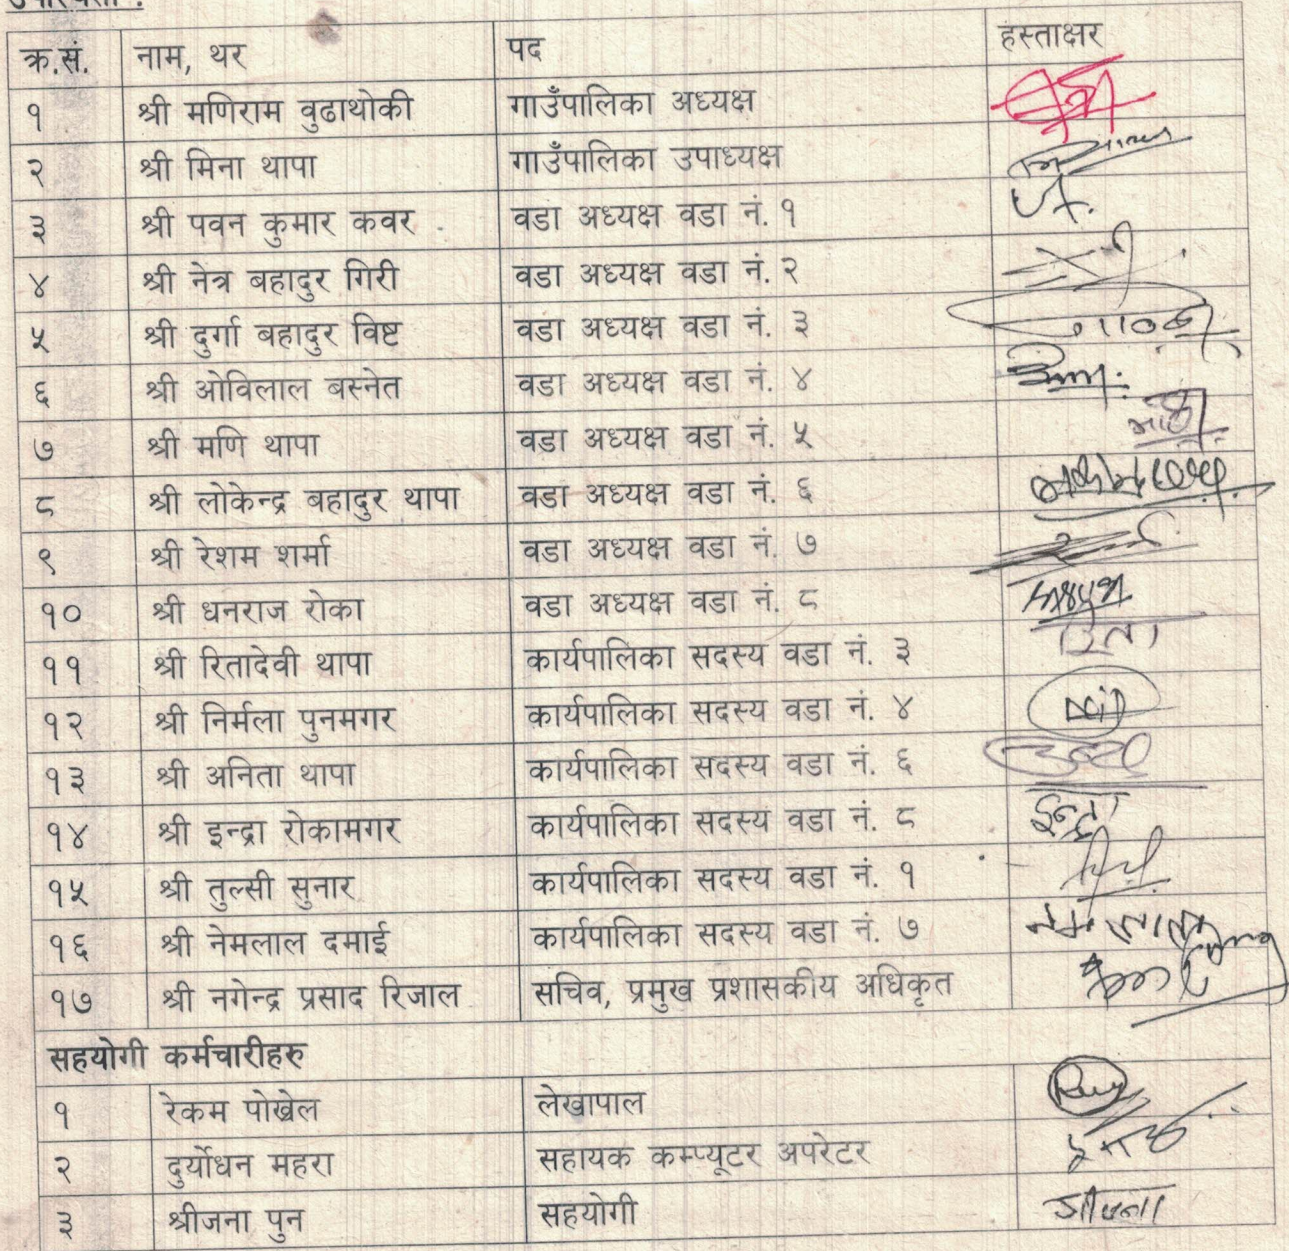 उपस्थिती :
क्र.सं. नाम, थर पद हस्ताक्षर
१ श्री मणिराम वुढाथोकी गाउँपालिका अध्यक्ष
२ श्री मिना थापा गाउँपालिका उपाध्यक्ष
३ श्री पवन कुमार कवर वडा अध्यक्ष वडा नं. १
४ श्री नेत्र बहादुर गिरी वडा अध्यक्ष वडा नं. २
५ श्री दुर्गा बहादुर विष्ट वडा अध्यक्ष वडा नं. ३
६ श्री ओविलाल बस्नेत वडा अध्यक्ष वडा नं. ४
७ श्री मणि थापा वडा अध्यक्ष वडा नं. ५
८ श्री लोकेन्द्र बहादुर थापा वडा अध्यक्ष वडा नं. ६
९ श्री रेशम शर्मा वडा अध्यक्ष वडा नं. ७
१० श्री धनराज रोका वडा अध्यक्ष वडा नं. ८
११ श्री रितादेवी थापा कार्यपालिका सदस्य वडा नं. ३ रिता
१२ श्री निर्मला पुनमगर कार्यपालिका सदस्य वडा नं. ४
१३ श्री अनिता थापा कार्यपालिका सदस्य वडा नं. ६
१४ श्री इन्द्रा रोकामगर कार्यपालिका सदस्य वडा नं. ८ इन्द्रा
१५ श्री तुल्सी सुनार कार्यपालिका सदस्य वडा नं. १
१६ श्री नेमलाल दमाई कार्यपालिका सदस्य वडा नं. ७
१७ श्री नगेन्द्र प्रसाद रिजाल सचिव, प्रमुख प्रशासकीय अधिकृत
सहयोगी कर्मचारीहरु
१ रेकम पोख्रेल लेखापाल
२ दुर्योधन महरा सहायक कम्प्यूटर अपरेटर
३ श्रीजना पुन सहयोगी